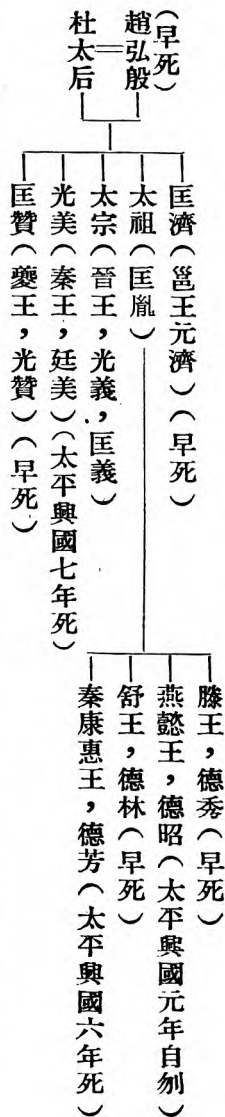 (早死)
趙弘殷
杜太后
匡濟(邕王元濟)(早死)
太祖(匡胤)
太宗(晉王,光義,匡義)
光美(秦王,廷美)(太平興國七年死)
匡贊(夔王,光贊)(早死)
滕王,德秀(早死)
燕懿王,德昭(太平興國元年自刎)
舒王,德林(早死)
秦康惠王,德芳(太平興國六年死)